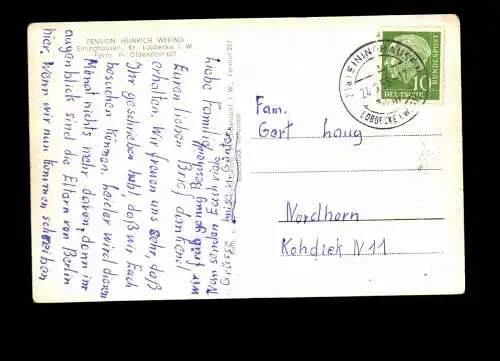 PENSION HEINRICH WEKING
Eininghausen, Kr. Lübbecke i. W.
Fernr. Pr. Oldendorf 601
Liebe Familie
Euren lieben Brief dankend
erhalten. Wir freuen uns sehr, daß
Ihr geschrieben habt, daß wir Euch
besuchen können, leider wird diesen
Monat nichts mehr davon, denn im
augenblick sind die Eltern von Berlin
hier. Wann wir nun kommen schreiben
wir früh genug Bescheid.
Nun senden Euch viele
Grüsse
EININGHAUSEN
LÜBBECKE i.W.
10
DEUTSCHE
BUNDESPOST
Fam.
Gert Haug
Nordhorn
Kohdiek N11